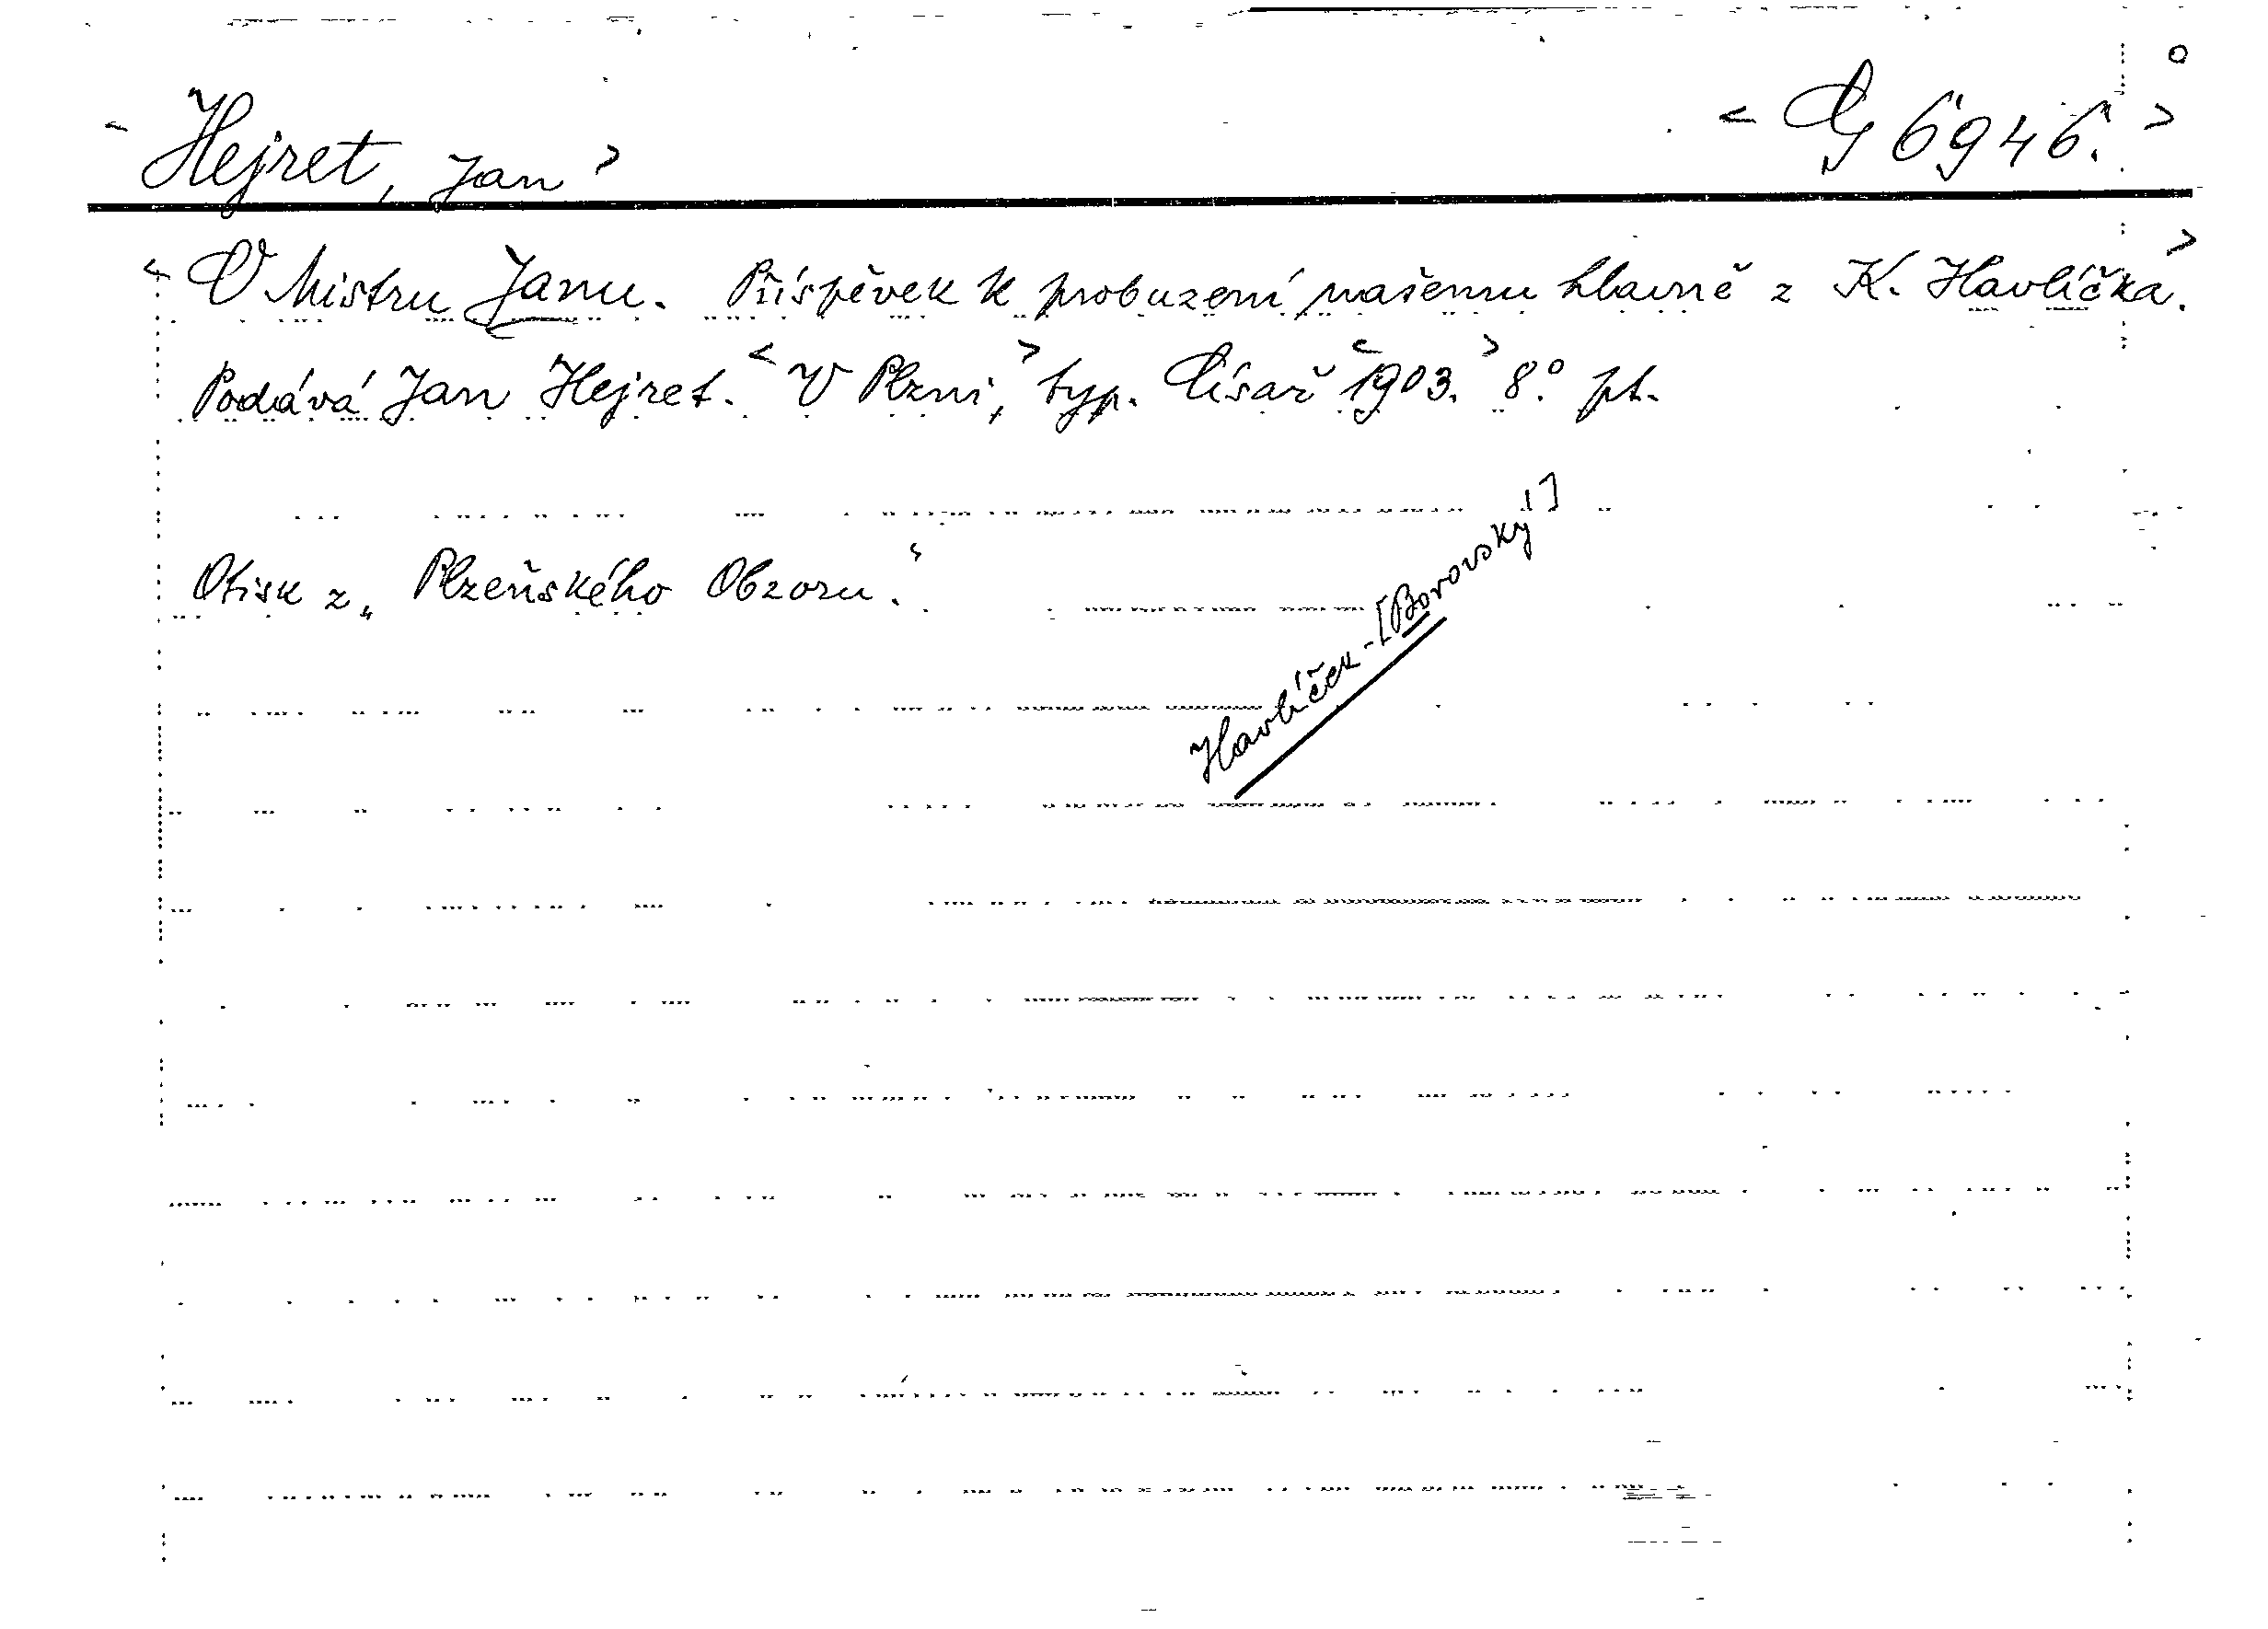 <Hejret, Jan> <G 6946.>
<O Mistru Janu. Příspěvek k probuzení našemu hlavně z K. Havlíčka.>
Podává Jan Hejret. <V Plzni,> typ. Císař <1903.> 8° pt.
Otisk z „Plzeňského Obzoru.“
Havlíček-[Borovský]